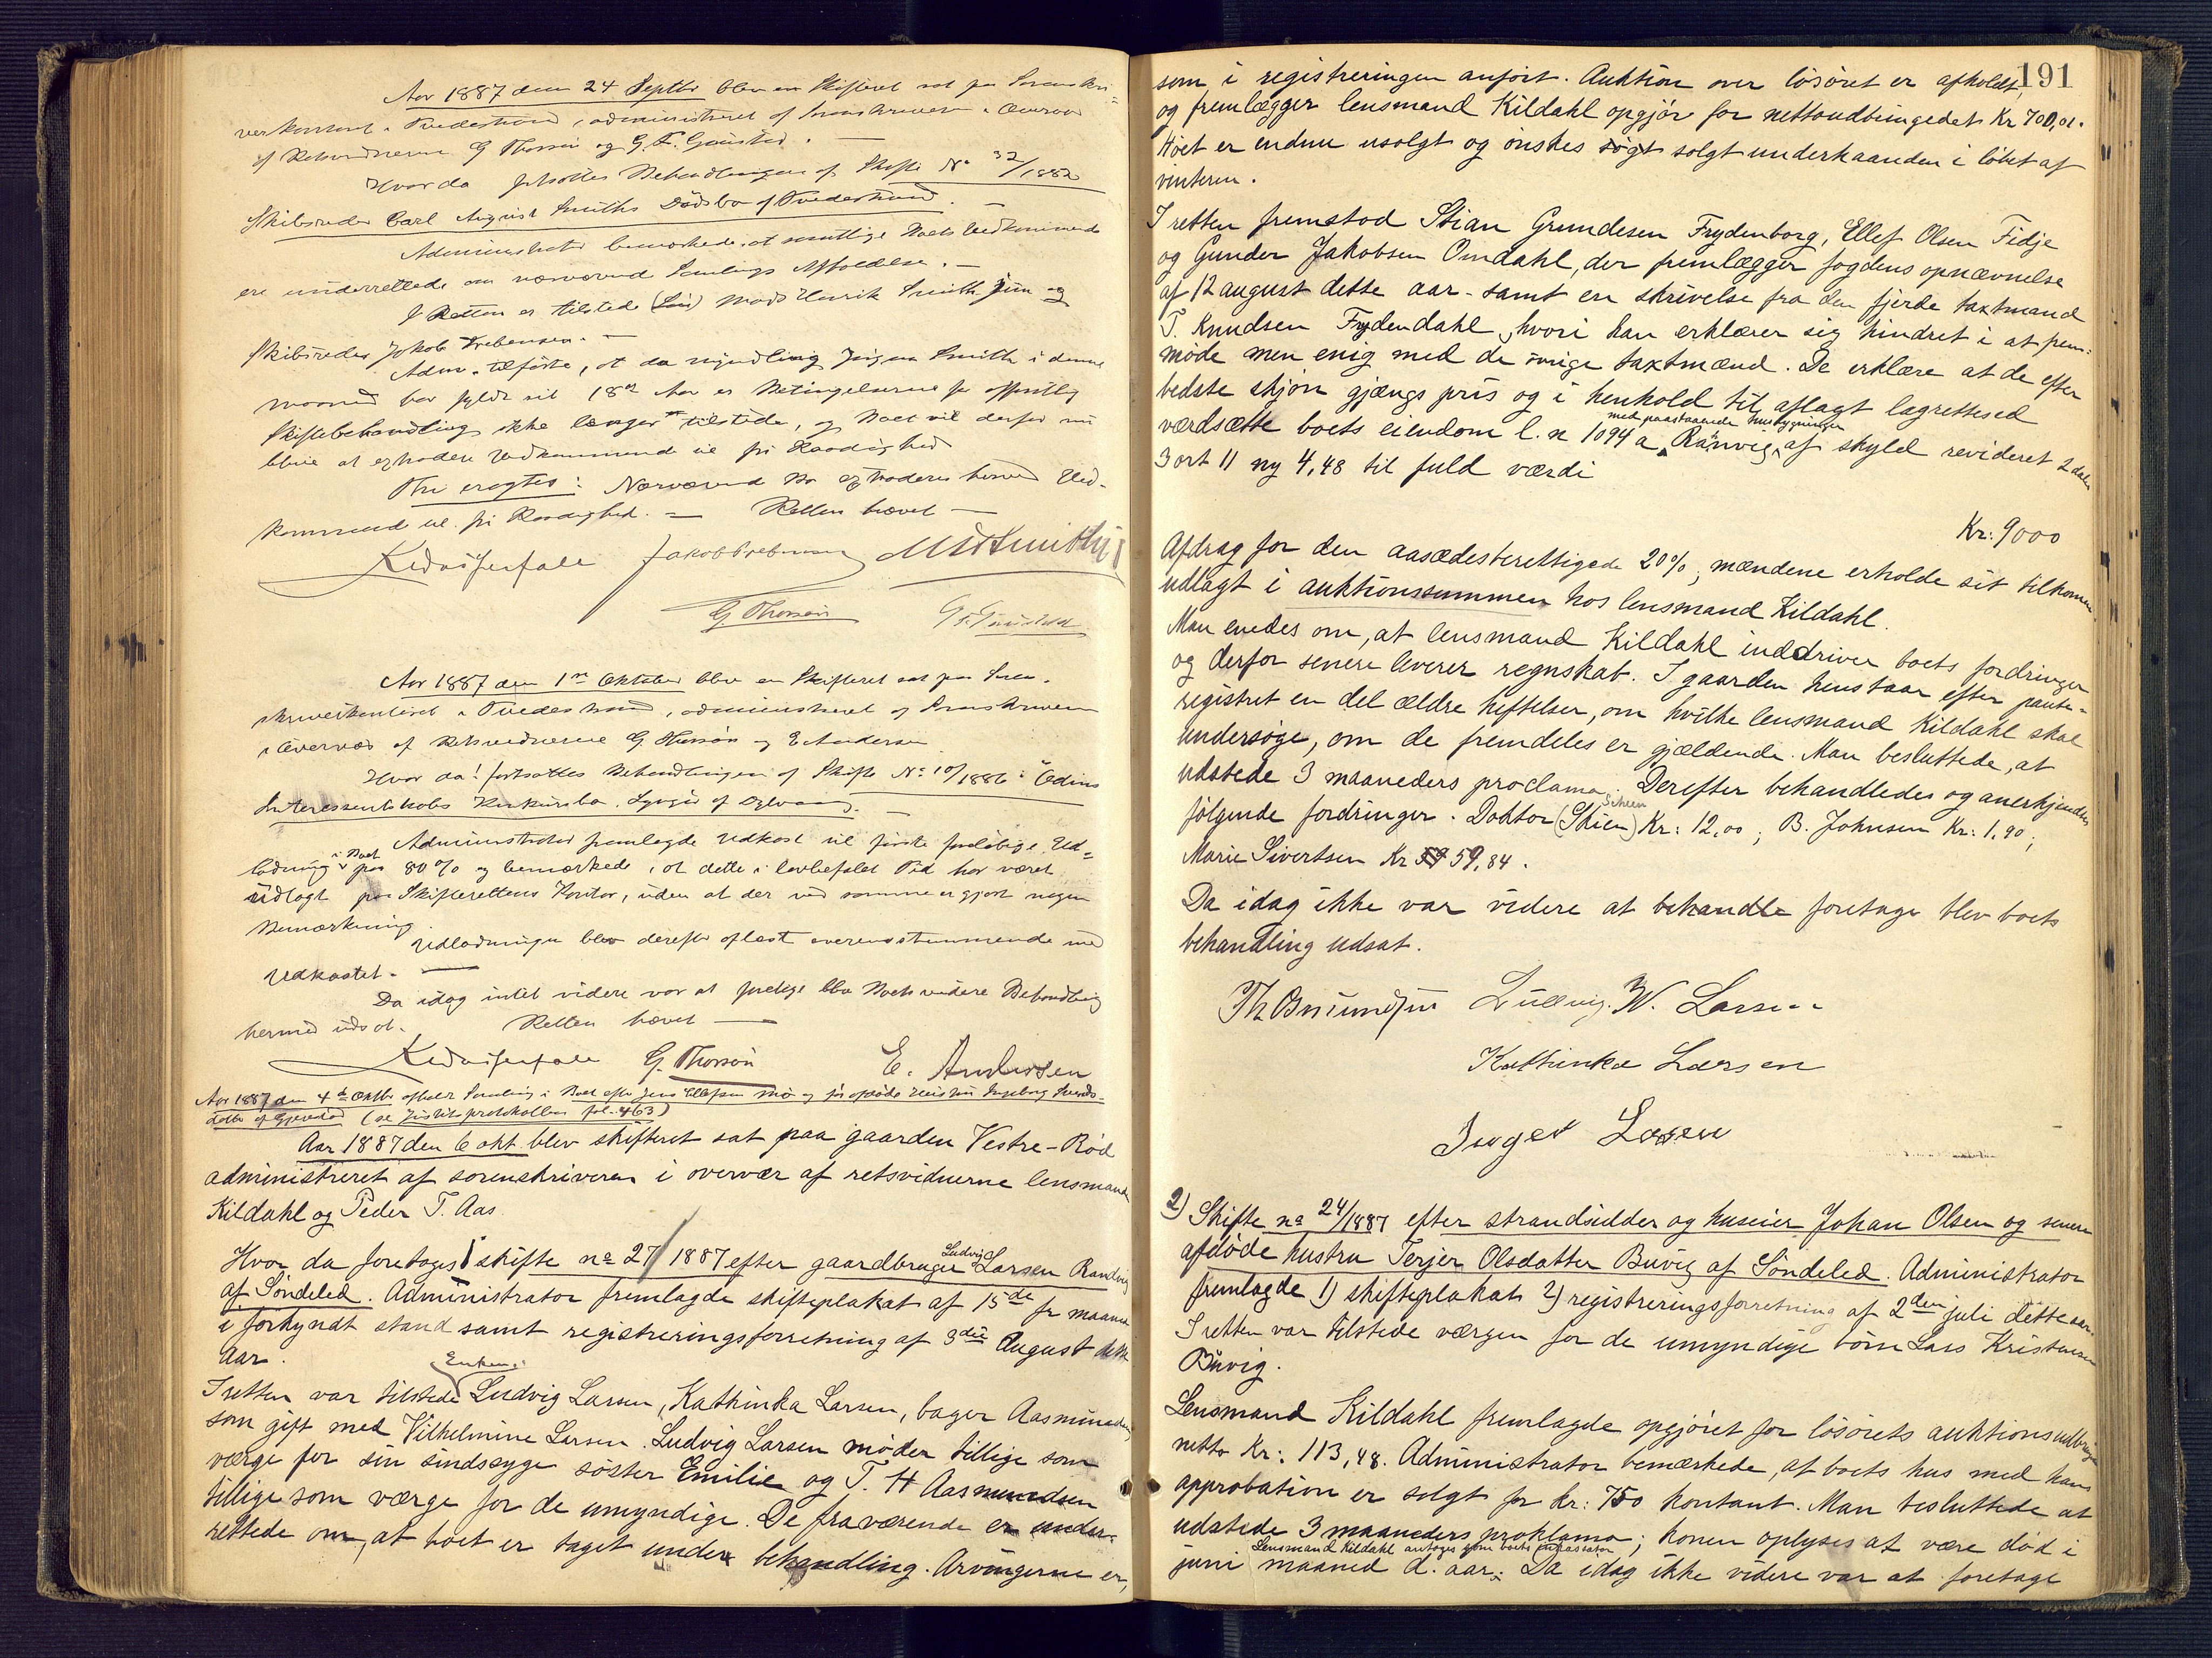 Aar 1887 den 24 Septbr blev en Skifteret sat paa Sorenskri=
verkontoret i Tvedestrand, administreret af Sorenskriveren i Overvær
af Retsvidnerne G Thorsøn og G. F.
Hvorda fortsattes Behandlingen af Skifte No 32/1882
Skibsreder Carl August Smiths Dödsbo af Tvedestrand. —
Administrator bemærkede, at samtlige Boets Vedkommende
ere underrettede om nærværende Samlings Afholdelse. —
I Retten er tilstede Mads Henrik Smith jun og
Skibsreder Jakob Prebensen. —
Adm. tilførte, at da myndling Jörgen Smith i denne
maaned har fyldt sit 18de Aar er Betingelserne for offentlig
Skiftebehandling ikke længer tilstede, og Boet vil derfor nu
blive at extradere Vedkommende til fri Raadighed
Thi eragtes: Nærværende Bo extraderes herved Ved-
kommende til fri Raadighed. — Retten hævet —
Jakob Prebensen MHSmith j
G Thorsøn
Aar 1887 den 1ste Oktober blev en Skifteret sat paa Soren-
skriverkontoret i Tvedestrand, administreret af Sorenskriveren
i Overvær af Retsvidnerne G Thorsøn og E Andersen
Hvor da! fortsattes Behandlingen af Skifte No 10/1886: "Odins
Interessentskabs Konkursbo, Lyngør af Dybvaag. —
Administrator fremlagde Udkast til første foreløbige Ud=
lodning i Boet paa 80 % og bemærkede, at dette i lovbefalet Tid har været
udlagt paa Skifterettens Kontor, uden at der ved samme er gjort nogen
Bemærkning.
Udlodningen blev derefter oplæst overensstemmende med
Udkastet. —
Da idag intet videre var at foretage blev Boets videre Behandling
hermed udsat. Retten hævet —
G. Thorsøn E. Andersen
Aar 1887 den 4de Oktbr afholdt Samling i Boet efter Jens Ellefsen Mo og før afdøde Hustru Ingeborg
af Gjevedal (se Justitsprotokollen fol. 463)
Aar 1887 den 6 okt. blev skifteret sat paa gaarden Vestre-Röd
administreret af sorenskriveren i overvær af retsvidnerne lensmand
Kildahl og Peder T. Aas.
Hvor da foretoges 1 skifte no 27/1887 efter gaardbruger Ludvig Larsen Randvig
af Söndeled. Administrator fremlagde skifteplakat af 15de fr maaned
i forkyndt stand samt registreringsforretning af 3die August dette
Aar.
I retten var tilstede Enken: Ludvig Larsen, Kathinka Larsen, bager Aasmundsen
som gift med Vilhelmine Larsen. Ludvig Larsen möder tillige som
værge for sin sindssyge söster Emilie og T. H Aasmundsen
tillige som værge for de umyndige. De fraværende er under-
rettede om, at boet er taget under behandling. Arvingerne er,
191
som i registreringen anført. Auktion over lösöret er afholdt,
og fremlægger lensmand Kildahl opgjör for nettoudbringedet Kr 700,01.
Höet er endnu usolgt og önskes sögt solgt underhaanden i löbet af
vinteren.
I retten fremstod Stian Grundesen Frydenborg, Ellef Olsen Fidje
og Gunder Jakobsen Omdahl, der fremlægger fogdens opnævnelse
af 12 august dette aar - samt en skrivelse fra den fjerde taxtmand
T. Knudsen Frydendahl, hvori han erklærer sig hindret i at frem-
möde men enig med de övrige taxtmænd. De erklære at de efter
bedste skjön gjængs pris og i henhold til aflagt lagrettesed
værdsætte boets eiendom l. n 1094 a Ranvig med paastaaende husbygninger af skyld revideret 2 daler
3 ort 11 ny 4,48 til fuld værdi
Kr: 9000
Afdrag for den aasædesberettigede 20%, mændene erholde sit tilkomm.
udlagt i auktionssummen hos lensmand Kildahl.
Man enedes om, at lensmand Kildahl inddriver boets fordringer
og derfor senere leverer regnskab. I gaarden henstaar efter pante-
registret en del ældre heftelser, om hvilke lensmand Kildahl skal
undersöge, om de fremdeles er gjældende. Man besluttede, at
udstede 3 maaneders proclama. Derefter behandledes og anerkjendtes
fölgende fordringer. Doktor (Skien) Scheen Kr: 12,00; B. Johnsen Kr: 1.90;
Marie Sivertsen Kr 59,84.
Da idag ikke var videre at behandle foretage blev boets
behandling udsat.
Ludvig. W. Larsen
Kathinka Larsen
Larsen
2) Skifte no 24/1887 efter strandsidder og huseier Johan Olsen og senere
afdöde hustru Terjer Olsdatter Buvig af Söndeled. Administrator
fremlagde 1) skifteplakat 2) registreringsforretning af 2den juli dette aar.
I retten var tilstede værgen for de umyndige börn Lars Kristensen
Buvig.
Lensmand Kildahl fremlagde opgjöret for lösörets auktionsudbringe
netto Kr: 113,48. Administrator bemærkede, at boets hus med hans
approbation er solgt for kr: 750 kontant. Man besluttede at
udstede 3 maaneders proklama; konen oplyses at være död i
juni maaned d. aar. Lensmand Kildahl antoges som boets inkassator Da idag ikke videre var at foretage